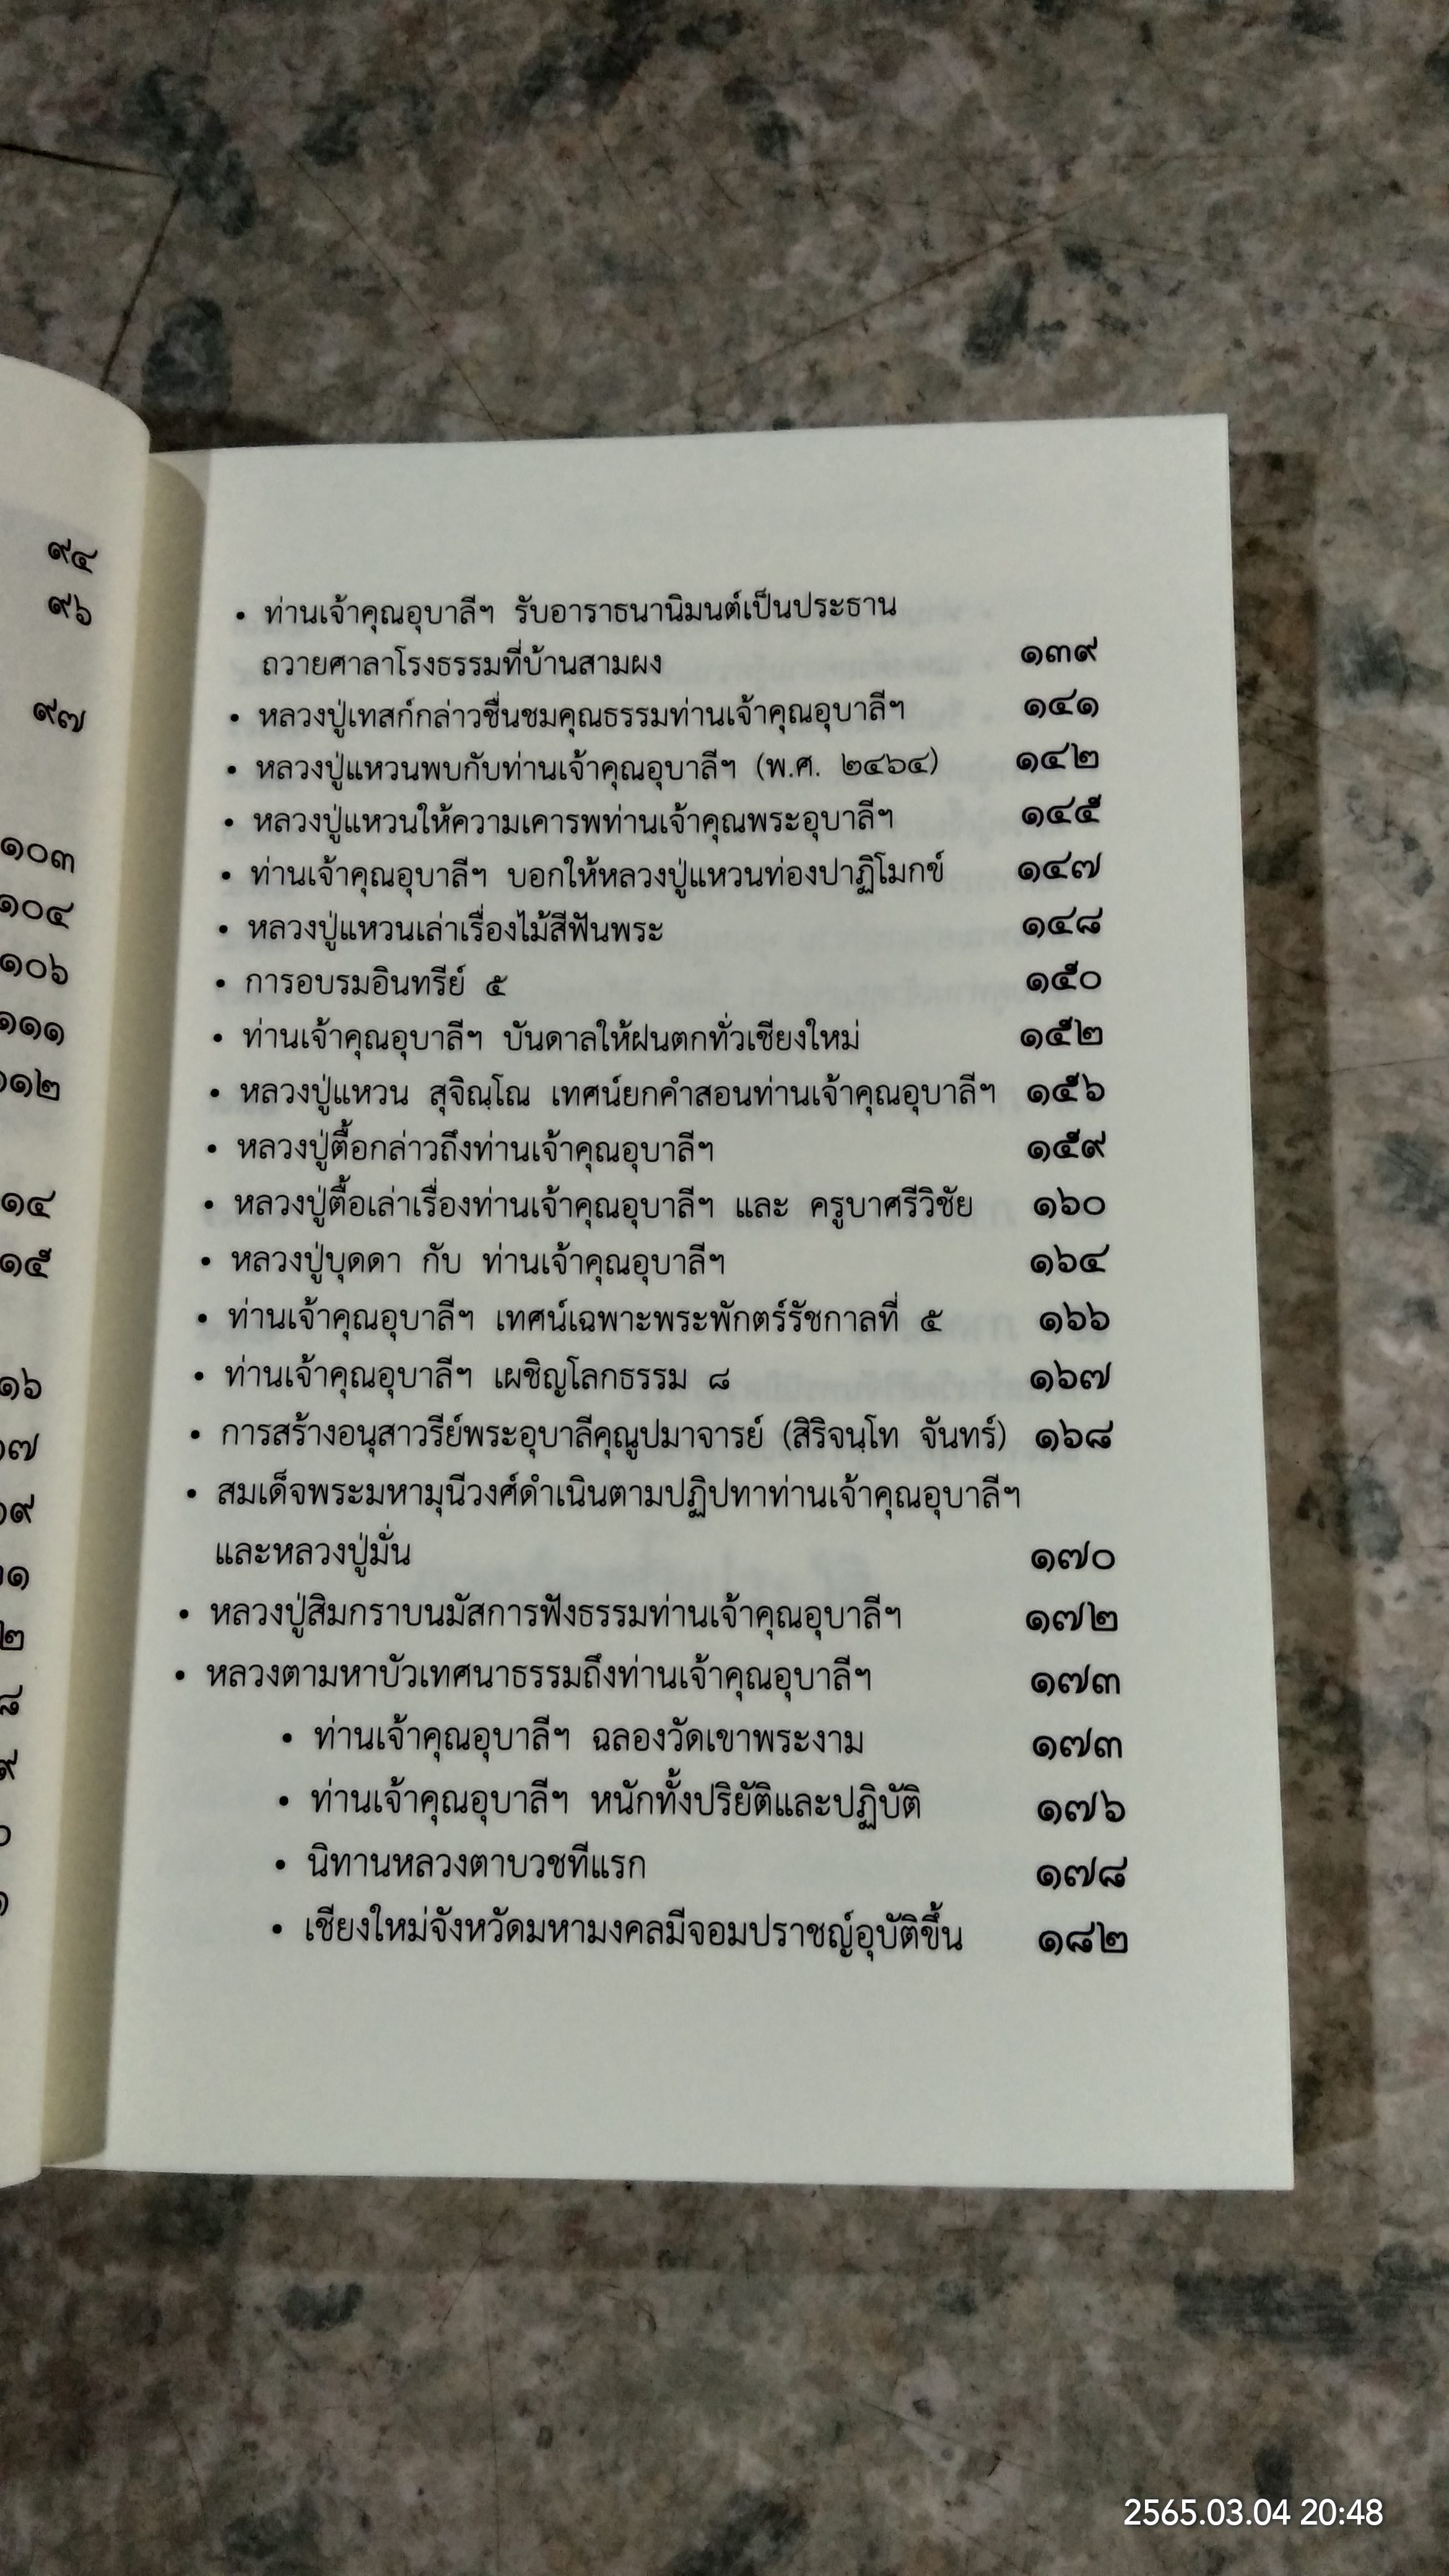 ๙๔
๙๖
๙๗
๑๐๓
๑๐๔
๑๐๖
๑๑๑
๑๒
๑๔
๑๕
๑๖
๗
๑๙
๑
๒
๘
๙
• ท่านเจ้าคุณอุบาลีฯ รับอาราธนานิมนต์เป็นประธาน
ถวายศาลาโรงธรรมที่บ้านสามผง ๑๓๙
• หลวงปู่เทสก์กล่าวชื่นชมคุณธรรมท่านเจ้าคุณอุบาลีฯ ๑๔๑
• หลวงปู่แหวนพบกับท่านเจ้าคุณอุบาลีฯ (พ.ศ. ๒๔๖๔) ๑๔๒
• หลวงปู่แหวนให้ความเคารพท่านเจ้าคุณพระอุบาลีฯ ๑๔๕
• ท่านเจ้าคุณอุบาลีฯ บอกให้หลวงปู่แหวนท่องปาฏิโมกข์ ๑๔๗
• หลวงปู่แหวนเล่าเรื่องไม้สีฟันพระ ๑๔๘
• การอบรมอินทรีย์ ๕ ๑๕๐
• ท่านเจ้าคุณอุบาลีฯ บันดาลให้ฝนตกทั่วเชียงใหม่ ๑๕๒
• หลวงปู่แหวน สุจิณฺโณ เทศน์ยกคำสอนท่านเจ้าคุณอุบาลีฯ ๑๕๖
• หลวงปู่ตื้อกล่าวถึงท่านเจ้าคุณอุบาลีฯ ๑๕๙
• หลวงปู่ตื้อเล่าเรื่องท่านเจ้าคุณอุบาลีฯ และ ครูบาศรีวิชัย ๑๖๐
• หลวงปู่บุดดา กับ ท่านเจ้าคุณอุบาลีฯ ๑๖๔
• ท่านเจ้าคุณอุบาลีฯ เทศน์เฉพาะพระพักตร์รัชกาลที่ ๕ ๑๖๖
• ท่านเจ้าคุณอุบาลีฯ เผชิญโลกธรรม ๘ ๑๖๗
• การสร้างอนุสาวรีย์พระอุบาลีคุณูปมาจารย์ (สิริจนฺโท จันทร์) ๑๖๘
• สมเด็จพระมหามุนีวงศ์ดำเนินตามปฏิปทาท่านเจ้าคุณอุบาลีฯ
และหลวงปู่มั่น ๑๗๐
• หลวงปู่สิมกราบนมัสการฟังธรรมท่านเจ้าคุณอุบาลีฯ ๑๗๒
• หลวงตามหาบัวเทศนาธรรมถึงท่านเจ้าคุณอุบาลีฯ ๑๗๓
• ท่านเจ้าคุณอุบาลีฯ ฉลองวัดเขาพระงาม ๑๗๓
• ท่านเจ้าคุณอุบาลีฯ หนักทั้งปริยัติและปฏิบัติ ๑๗๖
• นิทานหลวงตาบวชทีแรก ๑๗๘
• เชียงใหม่จังหวัดมหามงคลมีจอมปราชญ์อุบัติขึ้น ๑๘๒
2565.03.04 20:48